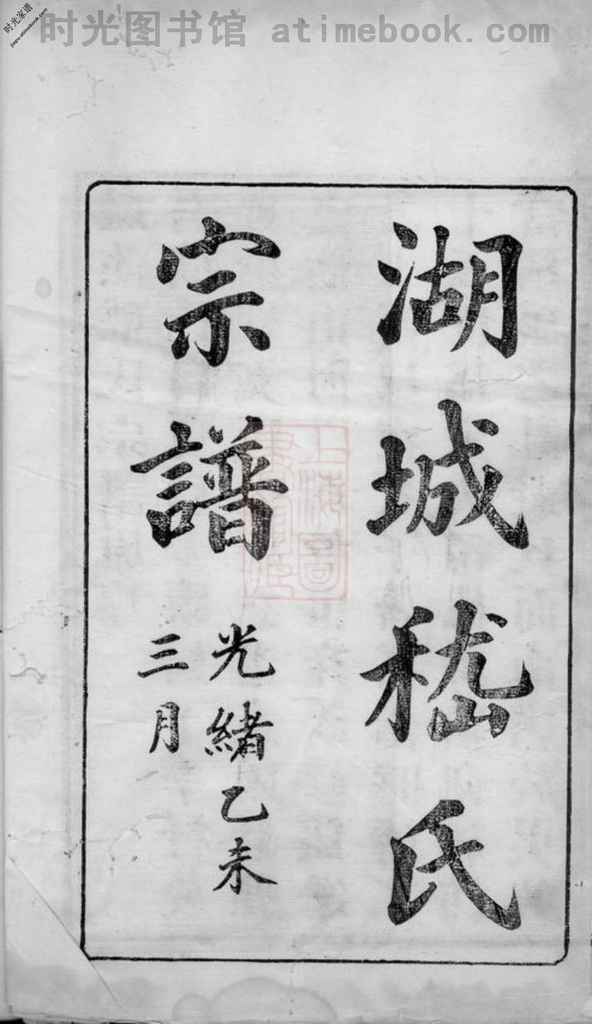 时光图书馆 atimebook.com
时光家谱
湖城嵇氏
宗譜
光緒乙未
三月